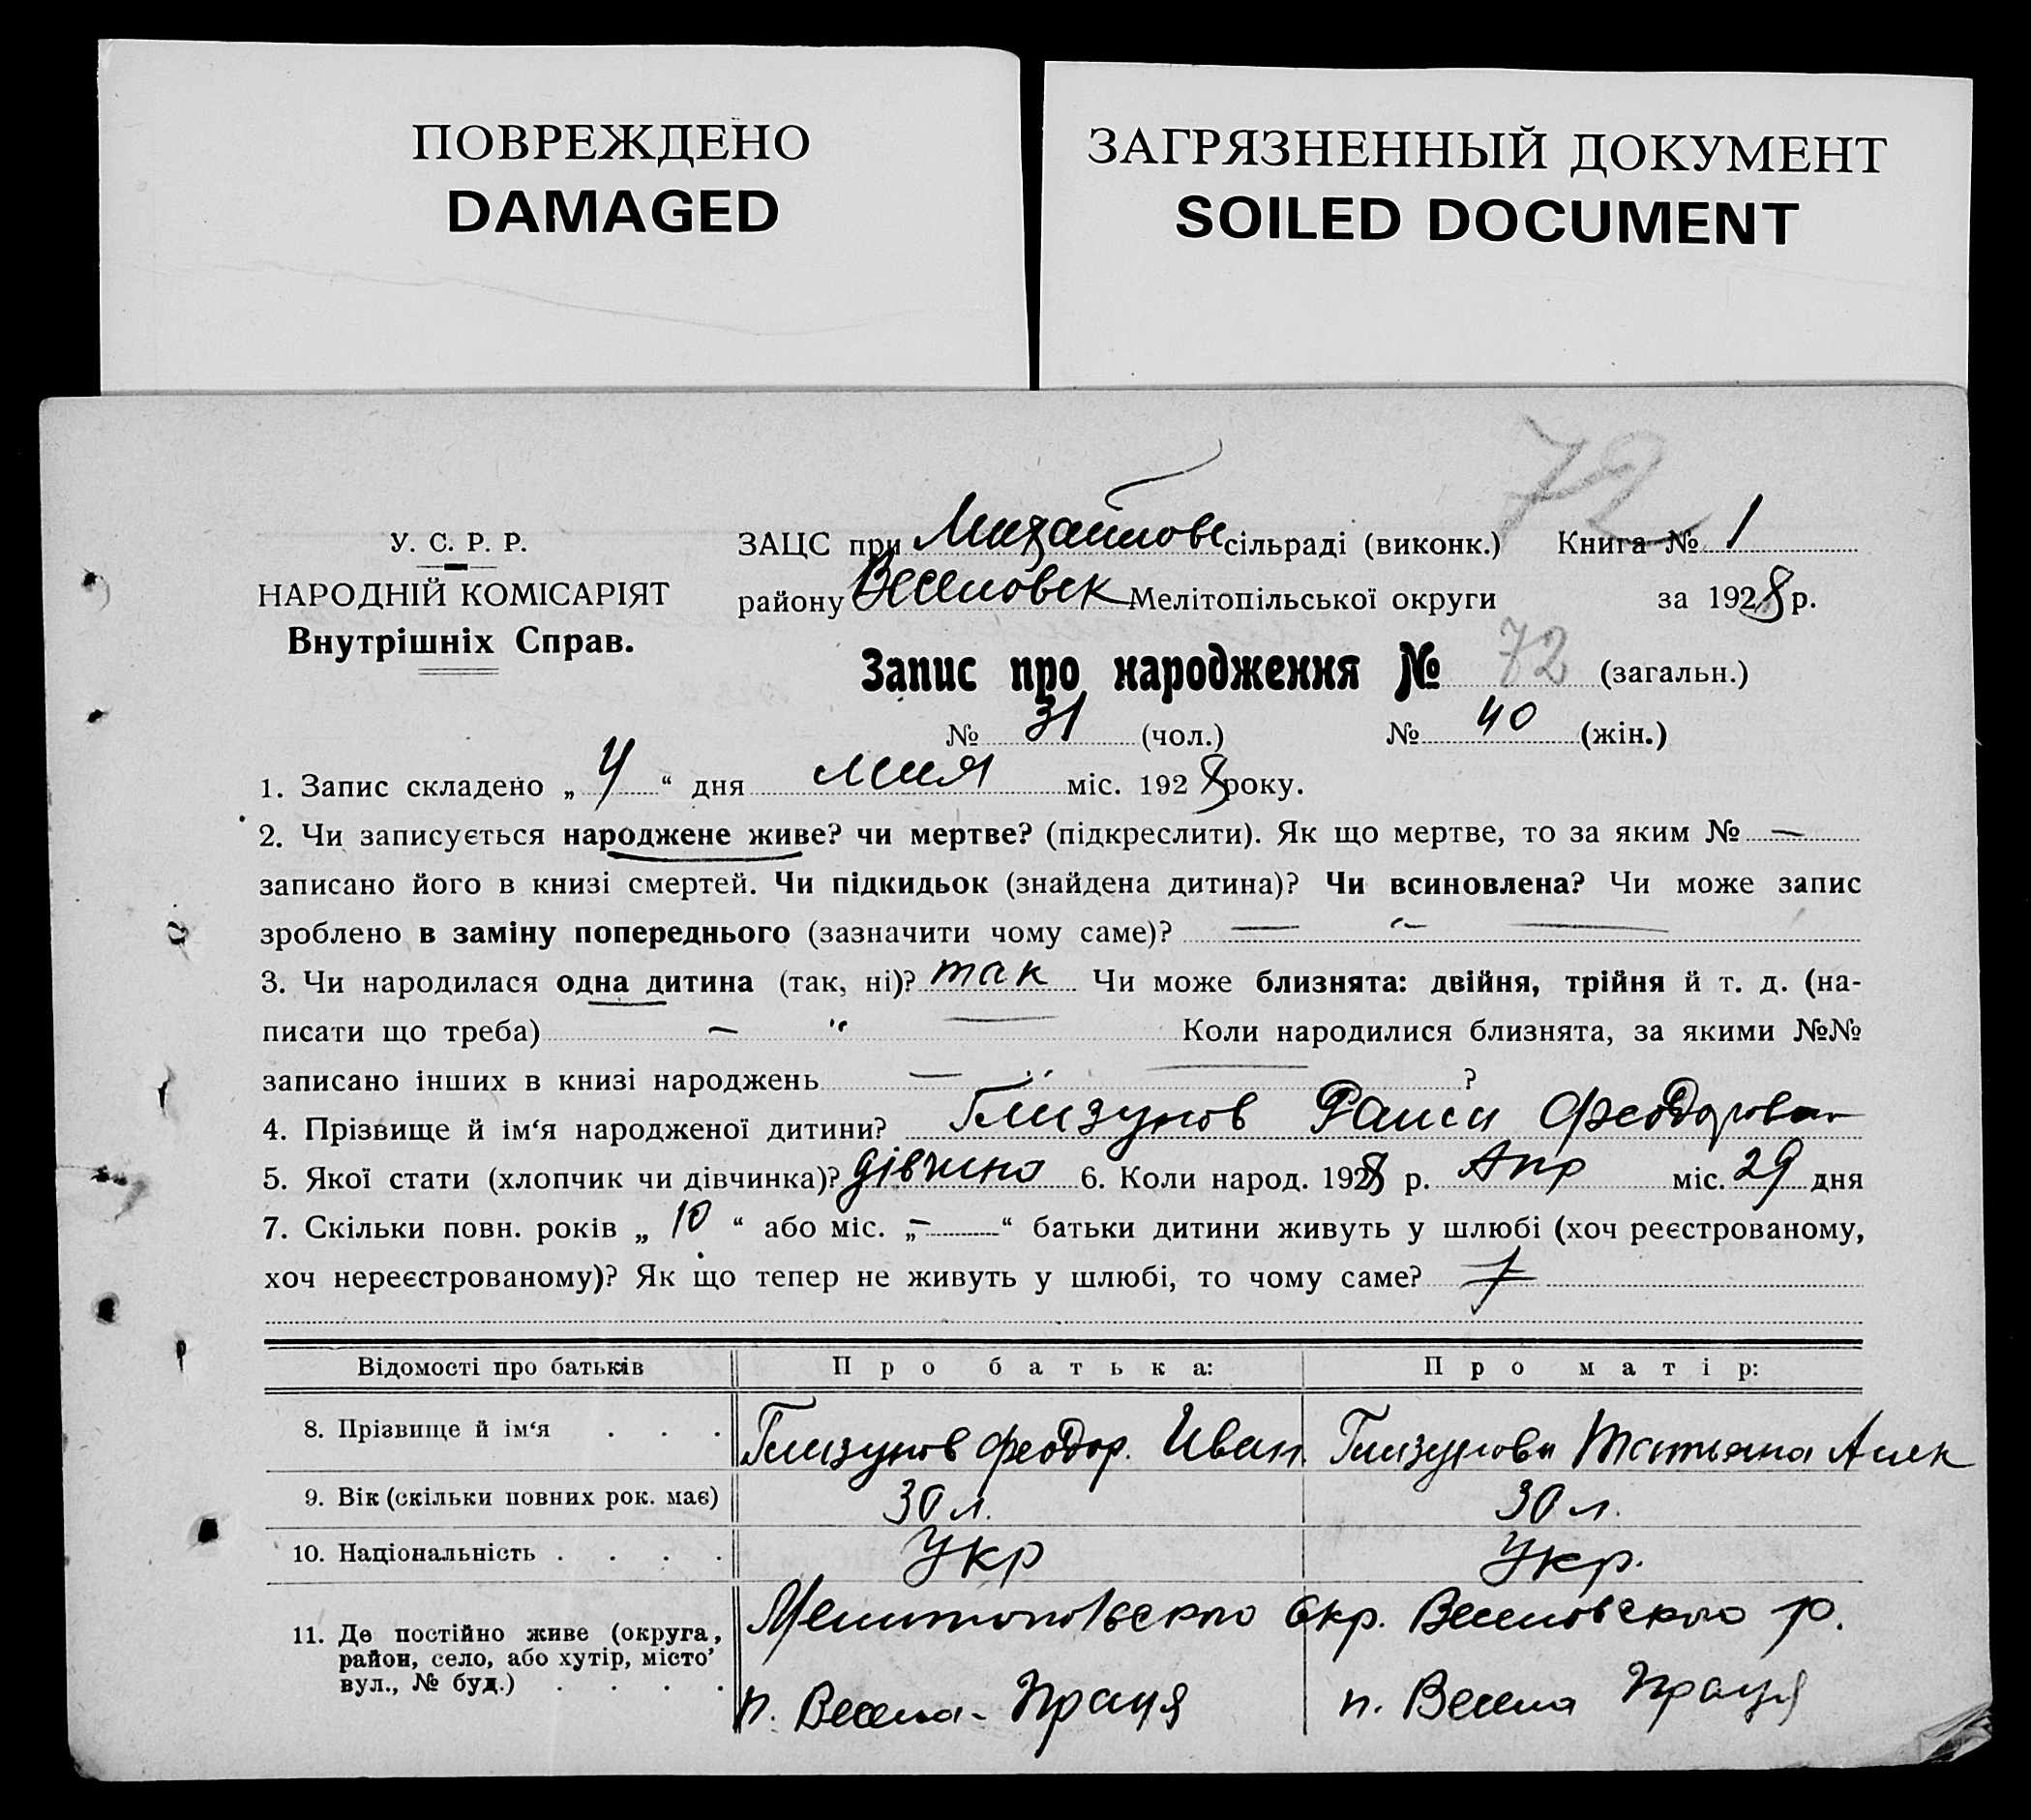 ПОВРЕЖДЕНО
DAMAGED
ЗАГРЯЗНЕННЫЙ ДОКУМЕНТ
SOILED DOCUMENT
72
У. С. Р. Р.
НАРОДНІЙ КОМІСАРІЯТ
Внутрішніх Справ.
ЗАЦС при Михайловс сільраді (виконк.) Книга № 1
району Веселовск Мелітопільської округи за 1928 р.
Запис про народження № 72 (загальн.)
№ 31 (чол.) № 40 (жін.)
1. Запис складено „ 4 “ дня мая міс. 1928 року.
2. Чи записується народжене живе? чи мертве? (підкреслити). Як що мертве, то за яким № —
записано його в книзі смертей. Чи підкидьок (знайдена дитина)? Чи всиновлена? Чи може запис
зроблено в заміну попереднього (зазначити чому саме)? — „ —
3. Чи народилася одна дитина (так, ні)? так Чи може близнята: двійня, трійня й т. д. (на-
писати що треба) — „ — Коли народилися близнята, за якими №№
записано інших в книзі народжень — „ — ?
4. Прізвище й ім‘я народженої дитини? Глизунов Раиса Феодоровн
5. Якої стати (хлопчик чи дівчинка)? дівчина 6. Коли народ. 1928 р. Апр міс. 29 дня
7. Скільки повн. років „ 10 “ або міс. „ — “ батьки дитини живуть у шлюбі (хоч реєстрованому,
хоч нереєстрованому)? Як що тепер не живуть у шлюбі, то чому саме?
Відомості про батьків Про батька: Про матір:
8. Прізвище й ім‘я . . . Глизунов Феодор. Иван Глизунова Татьяна Алек
9. Вік (скільки повних рок. має) 30 л. 30 л.
10. Національність . . . . Укр Укр.
11. Де постійно живе (округа, район, село, або хутір, місто’ вул., № буд.) . . . . Мелитопольского Окр. Веселовского р.
п. Весела-Праця п. Весела Праця